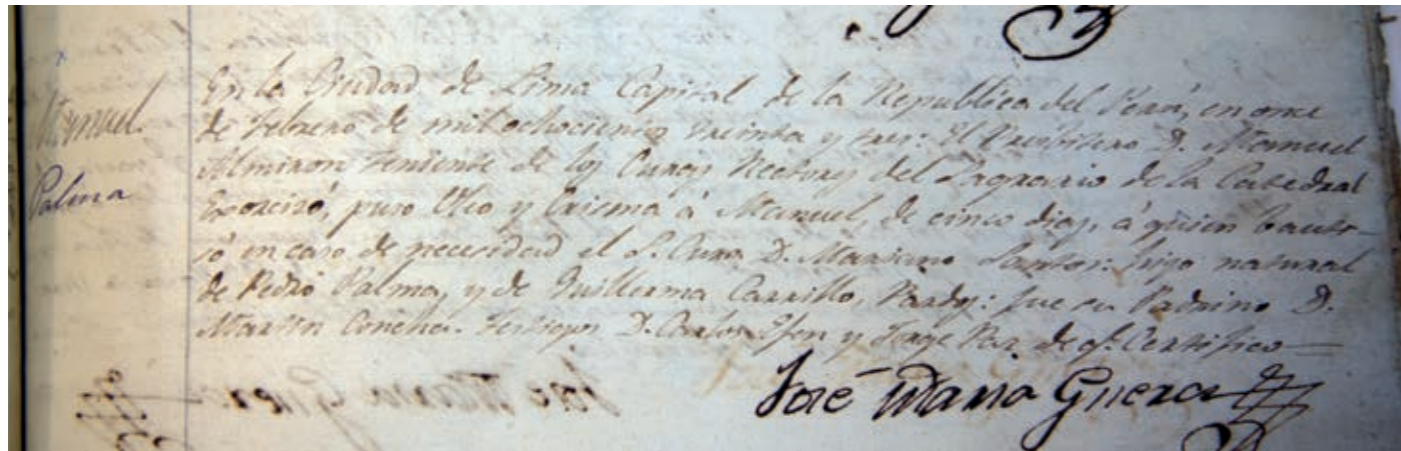 Manuel
Palma
En la Ciudad de Lima Capital de la Republica del Perú, en once
de Febrero de mil ochocientos treinta y tres: El Presbitero D. Manuel
Almiron Teniente de los Curas Rectores del Sagrario de la Catedral
Exorcisó, puso Oleo y Crisma á Manuel, de cinco dias, á quien bauti-
só en caso de necesidad el S. Cura D. Mariano Santos: hijo natural
de Pedro Palma, y de Guillerma Carrillo, Pardos: fue su Padrino D.
Martin Concha. Testigos D. Carlos y Jorge de q.e Certifico
José Maria Guerra